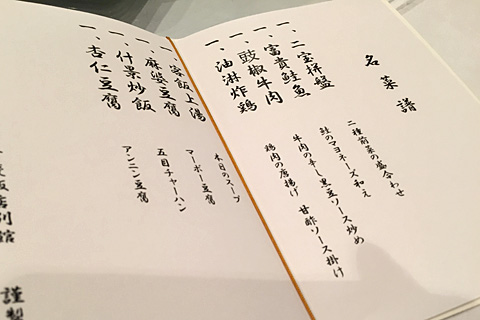 名菜譜
一、二宝拼盤
二種前菜の盛合わせ
一、富貴鮭魚
鮭のマヨネーズ和え
一、豉椒牛肉
牛肉の辛し黒豆ソース炒め
一、油淋炸鶏
鶏肉の唐揚げ 甘酢ソース掛け
一、客飯上湯
本日のスープ
一、麻婆豆腐
マーボー豆腐
一、什景炒飯
五目チャーハン
一、杏仁豆腐
アンニン豆腐
飯店別館 謹製